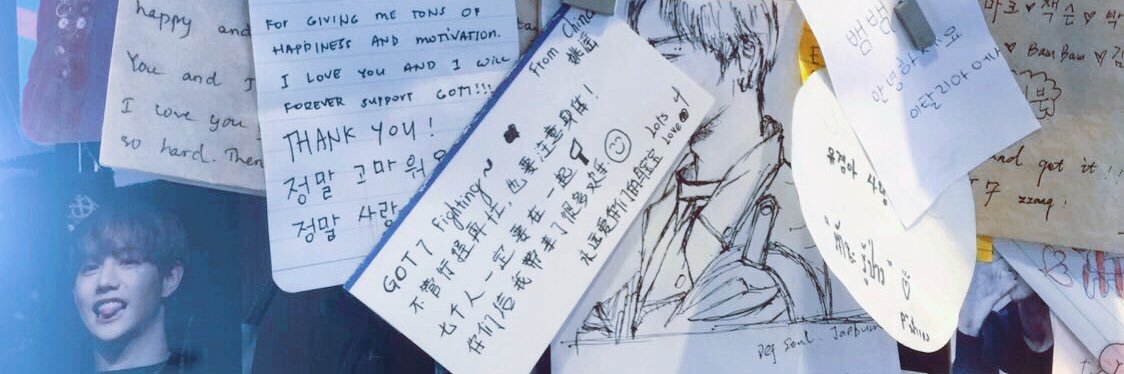 happy and
You and I
I love you
so hard. Then
FOR GIVING ME TONS OF
HAPPINESS AND MOTIVATION.
I LOVE YOU AND I WILL
FOREVER SUPPORT GOT7!!!
THANK YOU!
정말 고마워
정말 사랑
From China
GOT7 Fighting~
不管行程再忙,也要注意身体!
七个人一定要在一起
你们给我带来了很多欢乐
永远爱你们的宝宝
Lots
Love
Def Soul. Jaebum
뱀뱀
안녕하세요
이탈리아에서
유겸아 사랑
마크 ♥ 잭슨 ♥ 박
♥ BamBam ♥ 김
and get it!!
7 zzang!